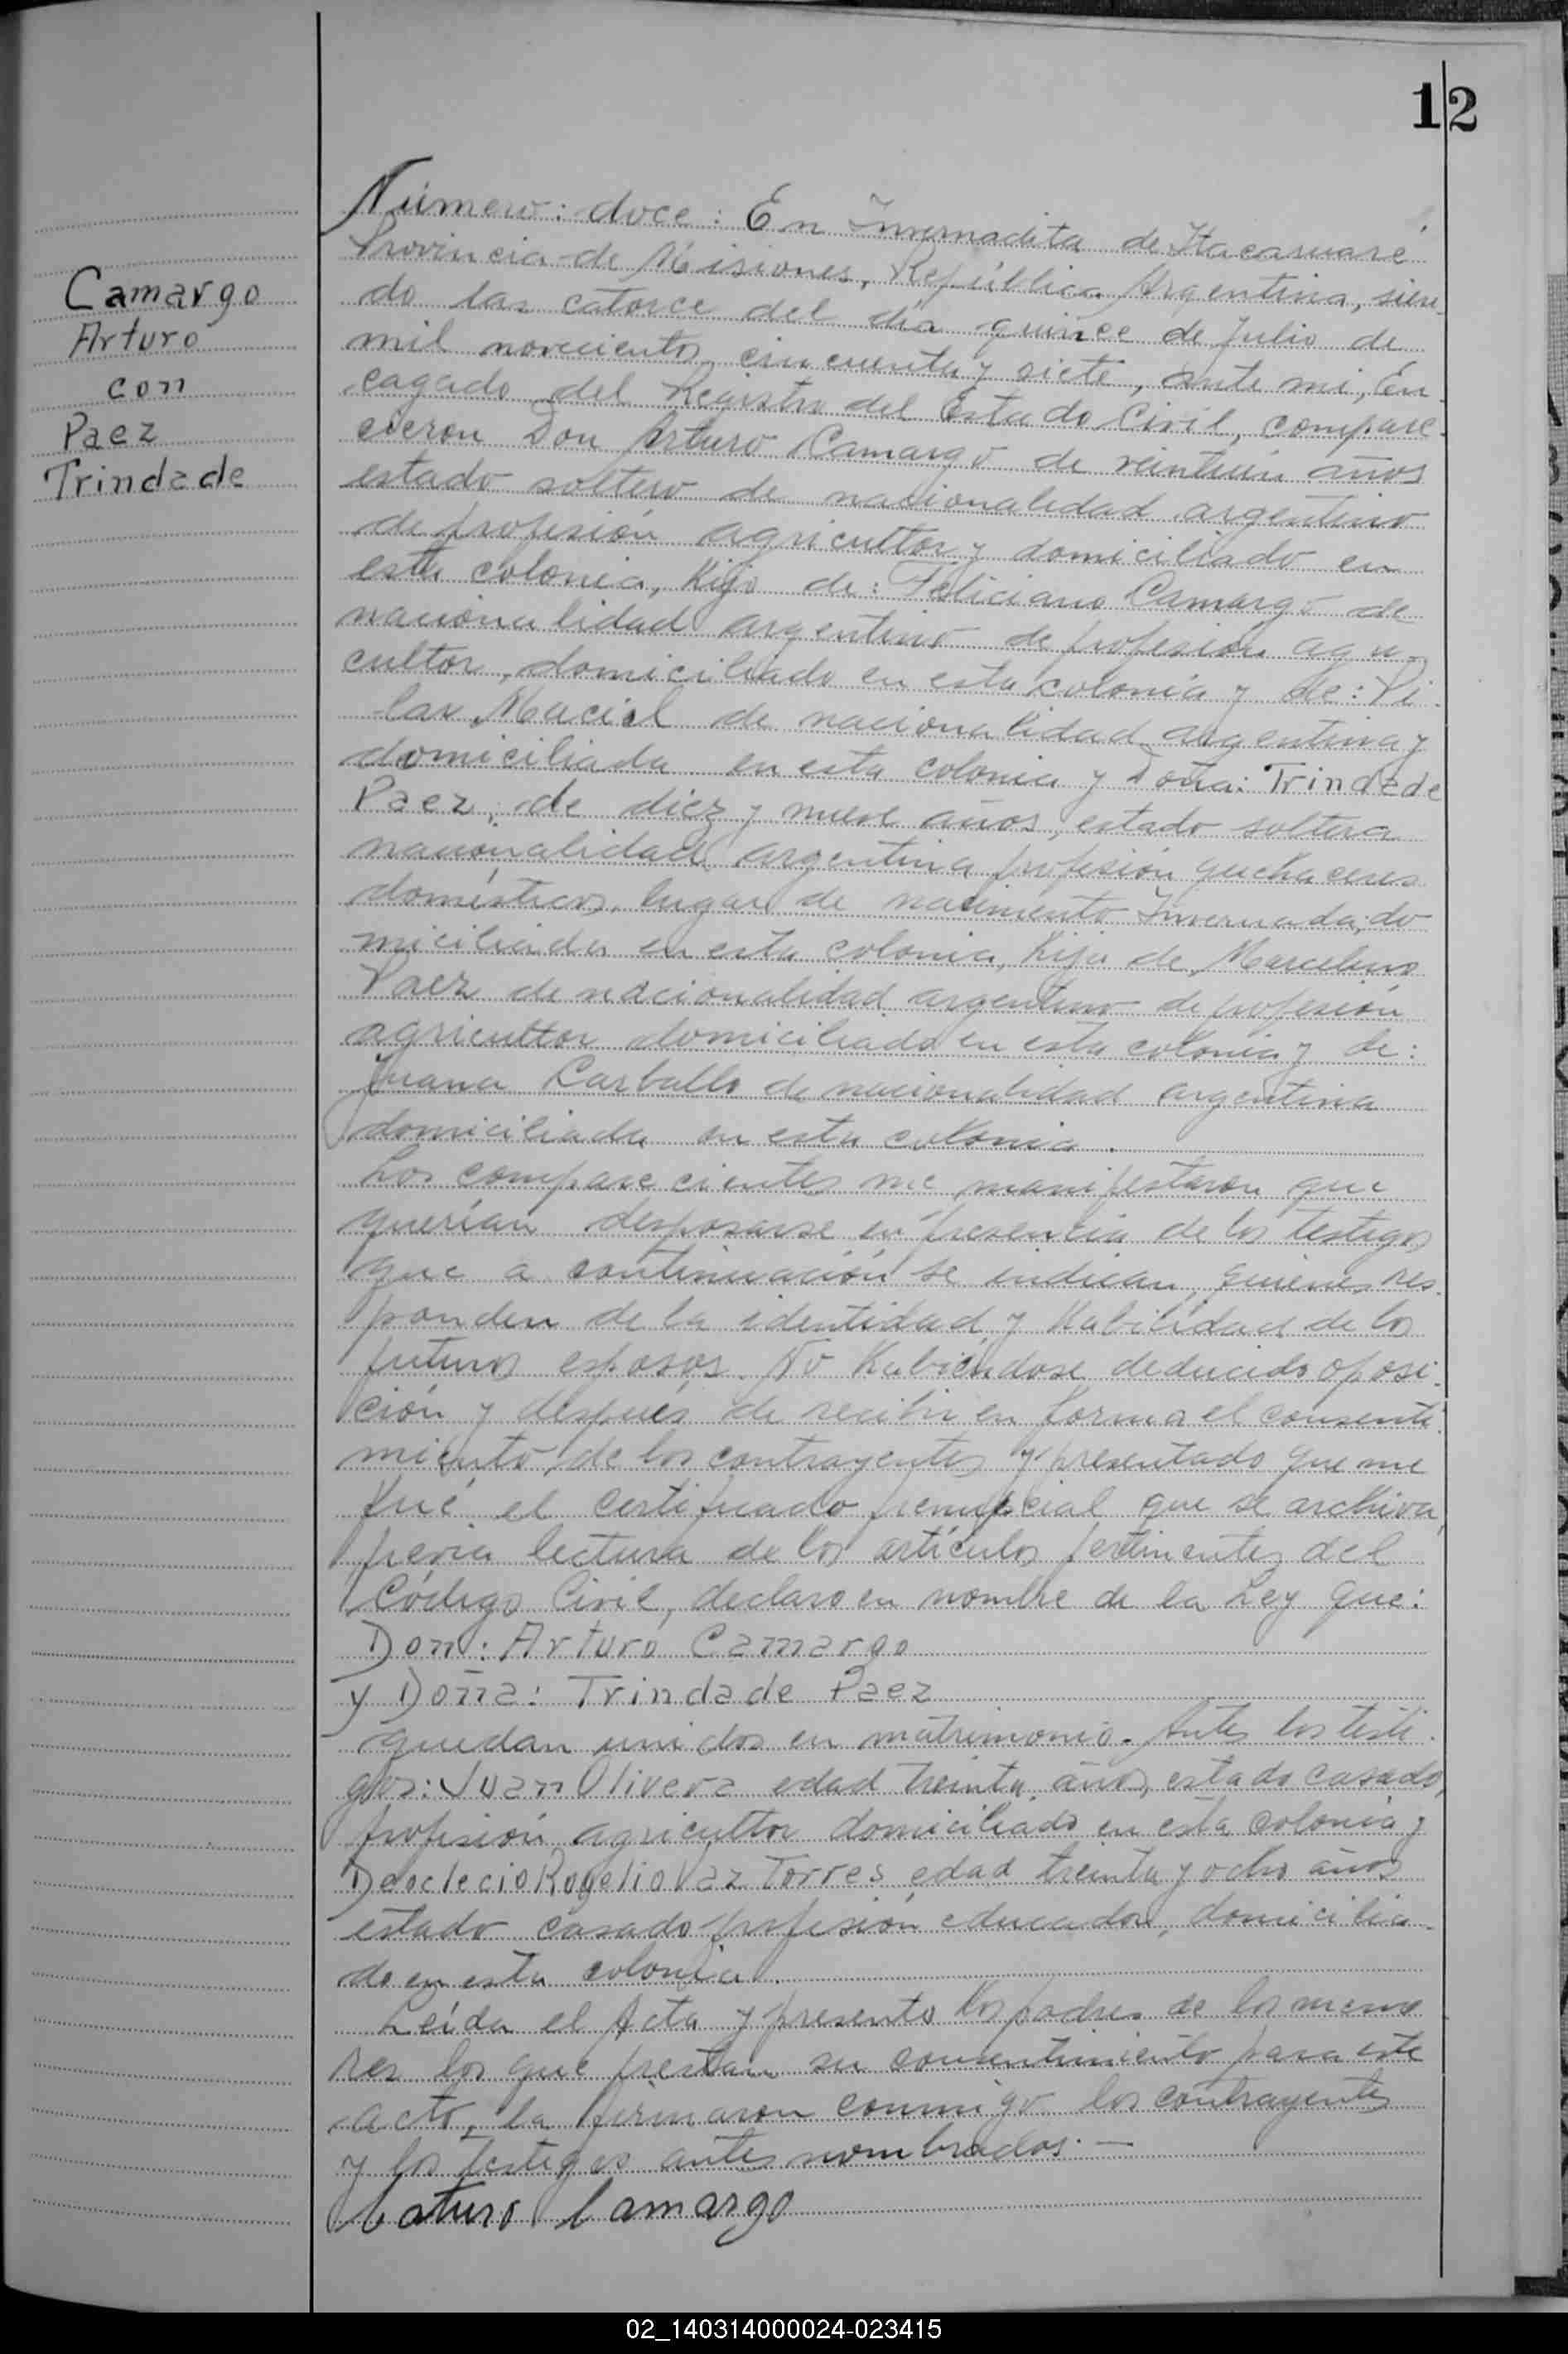 12
Camargo
Arturo
con
Paez
Trindade
Número: doce: En Invernadita de Itacaruaré
Provincia de Misiones, República Argentina, sien-
do las catorce del día quince de Julio de
mil novecientos cincuenta y siete, ante mi, En-
cagado del Registro del Estado Civil, compare-
cieron Don Arturo Camargo de veintiún años
estado soltero de nacionalidad argentino
de profesión agricultor y domiciliado en
esta colonia, hijo de: Feliciano Camargo de
nacionalidad argentino de profesión agri-
cultor, domiciliado en esta colonia y de: Pi-
lar Maciel de nacionalidad argentina y
domiciliada en esta colonia y Doña: Trindade
Paez, de diez y nueve años, estado soltera
nacionalidad argentina profesión quehaceres
domésticos, lugar de nacimiento Invernada, do-
miciliada en esta colonia, hija de Marcelino
Paez de nacionalidad argentino de profesión
agricultor domiciliado en esta colonia y de:
Juana Carballo de nacionalidad argentina
domiciliada en esta colonia.
Los comparecientes me manifestaron que
querían desposarse en presencia de los testigos
que a continuación se indican, quienes res-
ponden de la identidad y habilidad de los
futuros esposos. No habiéndose deducido oposi-
ción y después de recibir en forma el consenti-
miento de los contrayentes y presentado que me
fué el certificado prenupcial que se archiva,
previa lectura de los artículos pertinentes del
Código Civil, declaro en nombre de la Ley que:
Don: Arturo Camargo
y Doña: Trindade Paez
quedan unidos en matrimonio. Antes los testi-
gos: Juan Olivera edad treinta años, estado casado,
profesión agricultor domiciliado en esta colonia y
Deoclecio Rogelio Vaz Torres edad treinta y ocho años
estado casado profesión educador, domicilia-
do en esta colonia.
Leída el Acta y presento los padres de los meno-
res los que prestan su consentimiento para este
acto, la firmaron conmigo los contrayentes
y los testigos antes nombrados.—
Arturo Camargo
02_140314000024-023415